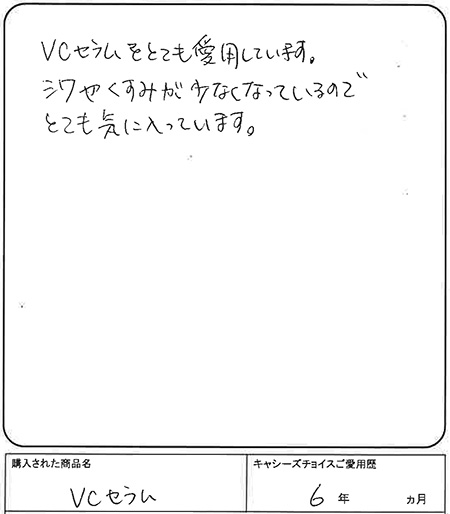 VCセラムをとても愛用しています。
シワやくすみが少なくなっているので
とても気に入っています。
購入された商品名
キャシーズチョイスご愛用歴
VCセラム
6年 ヵ月